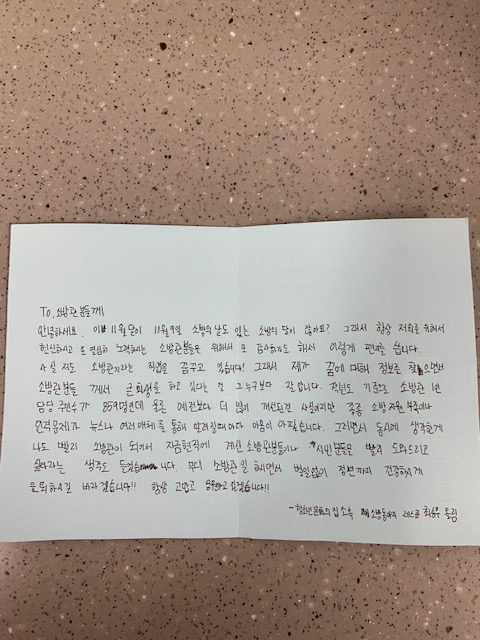 To. 소방관분들께!
안녕하세요. 이번 11월달이 11월 9일 소방의 날도 있는 소방의 달이 잖아요? 그래서 항상 저희를 위해서
헌신하시고 또 열심히 노력하시는 소방관분들을 위해서 또 감사하기도 해서 이렇게 편지를 씁니다.
사실 저도 소방관이라는 직업을 꿈꾸고 있습니다! 그래서 제가 꿈에 대해 정보를 찾으면서
소방관분들 께서 큰 희생을 하고 있다는 걸 그 누구보다 잘 압니다. 작년도 기준으로 소방관 1번
담당 주민수가 859명인데 물론 예전보다 더 많이 개선된건 사실이지만 종종 소방 지원 부족이나
인력문제가 뉴스나 여러 매체를 통해 알려질때마다 마음이 아픕니다. 그러면서 동시에 생각한게
나도 빨리 소방관이 되어서 지금현직에 계신 소방관분들이나 시민분들을 빨리 도와드리고
싶다라는 생각도 들었습니다. 부디 소방관일 하시면서 별일없이 정년까지 건강하시게
을퇴하시길 바라겠습니다!! 항상 고맙고 응원하고 있겠습니다!!
- 청소년문화의집 소속 소방동아리 레스큐 최 올림